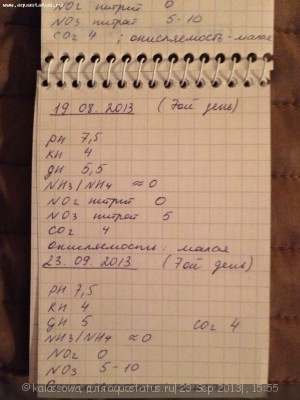 www.aquastatus.ru
NO2 нитрит 0
NO3 нитрат 5-10
CO2 4 ; окисляемость-малая
19.08.2013 (7ой день)
pH 7,5
KH 4
дH 5,5
NH3/NH4 ≈0
NO2 нитрит 0
NO3 нитрат 5
CO2 4
окисляемость: малая
23.09.2013 (7ой день)
pH 7,5
KH 4
дH 5 CO2 4
NH3/NH4 ≈0
NO2 0
NO3 5-10
aquastatus.ru| 23 Sep 2013|, 15:55